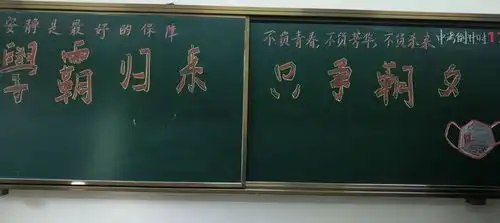 安静是最好的保障
學霸归来
不负青春,不负芳华,不负未来
中考倒计时1
只争朝夕